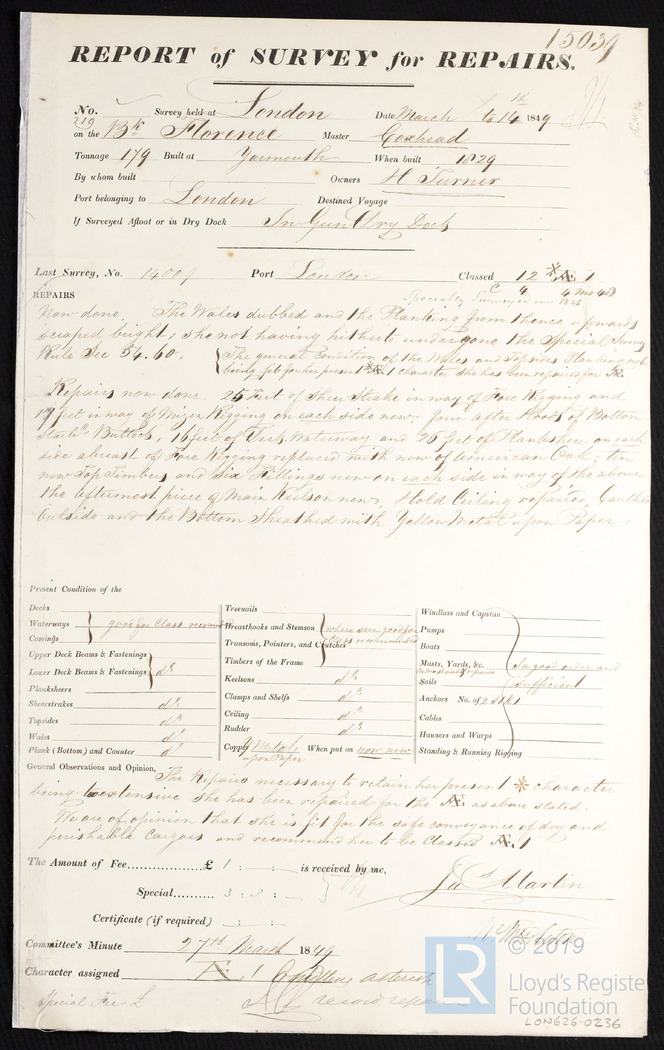 15039
REPORT of SURVEY for REPAIRS.
No. 219 Survey held at London Date March to 14th 1849
on the Bk Florence Master Coxhead
Tonnage 179 Built at Yarmouth When built 1829
By whom built Owners H Turner
Port belonging to London Destined Voyage
If Surveyed Afloat or in Dry Dock In Gun Dry Dock
Last Survey, No. 14009 Port London Classed 12 * Æ 1
Specially Surveyed 4 mo 48
REPAIRS
Now done. The Wales dubbed and the Planking from thence upwards
scraped bright, she not having hitherto undergone the Special Survey
Rule Sec 54.60. The general condition of the Wales and Topsides Planking not
being fit for her present * 1 character she has been repaired for Æ.
Repairs now done. 25 Feet of Sheer Strake in way of Fore Rigging and
17 feet in way of Mizen Rigging on each side new; four after Hoods of Bottom
Starbd Buttock, 16 feet of Deck Waterway and 25 feet of Planksheer on each
side abreast of Fore Rigging replaced with new of American Oak; ten
new Top Timbers and six Fillings new on each side in way of the above
the aftermost piece of Main Keelson new, Hold Ceiling repaired, Caulked
Outside and the Bottom Sheathed with Yellow Metal upon Paper.
Present Condition of the
Decks
Waterways good for Class
Comings
Upper Deck Beams & Fastenings
Lower Deck Beams & Fastenings do
Planksheers
Sheerstrakes do
Topsides do
Wales do
Plank (Bottom) and Counter do
Treenails
Breasthooks and Stemson where seen good for
Transoms, Pointers, and Crutches Class recommended
Timbers of the Frame
Keelsons do
Clamps and Shelfs do
Ceiling do
Rudder do
Copper Y Metal upon Paper When put on now new
Windlass and Capstan
Pumps
Boats
Masts, Yards, &c. In good order and
Sails sufficient
Anchors No. of 2 St & 1
Cables
Hawsers and Warps
Standing & Running Rigging
General Observations and Opinion, The Repairs necessary to retain her present * character
being too extensive she has been repaired for the Æ as above stated.
We are of opinion that she is fit for the safe conveyance of dry and
perishable Cargoes and recommend her to be Classed Æ. 1
The Amount of Fee £ 1 : : is received by me,
Special 3 : 3 : Jas Martin
Certificate (if required) : :
Committee's Minute 27th March 1849
Character assigned Æ 1 asterisk
record repairs
Special Fee £
LR © 2019
Lloyd's Register
Foundation
LON626-0236